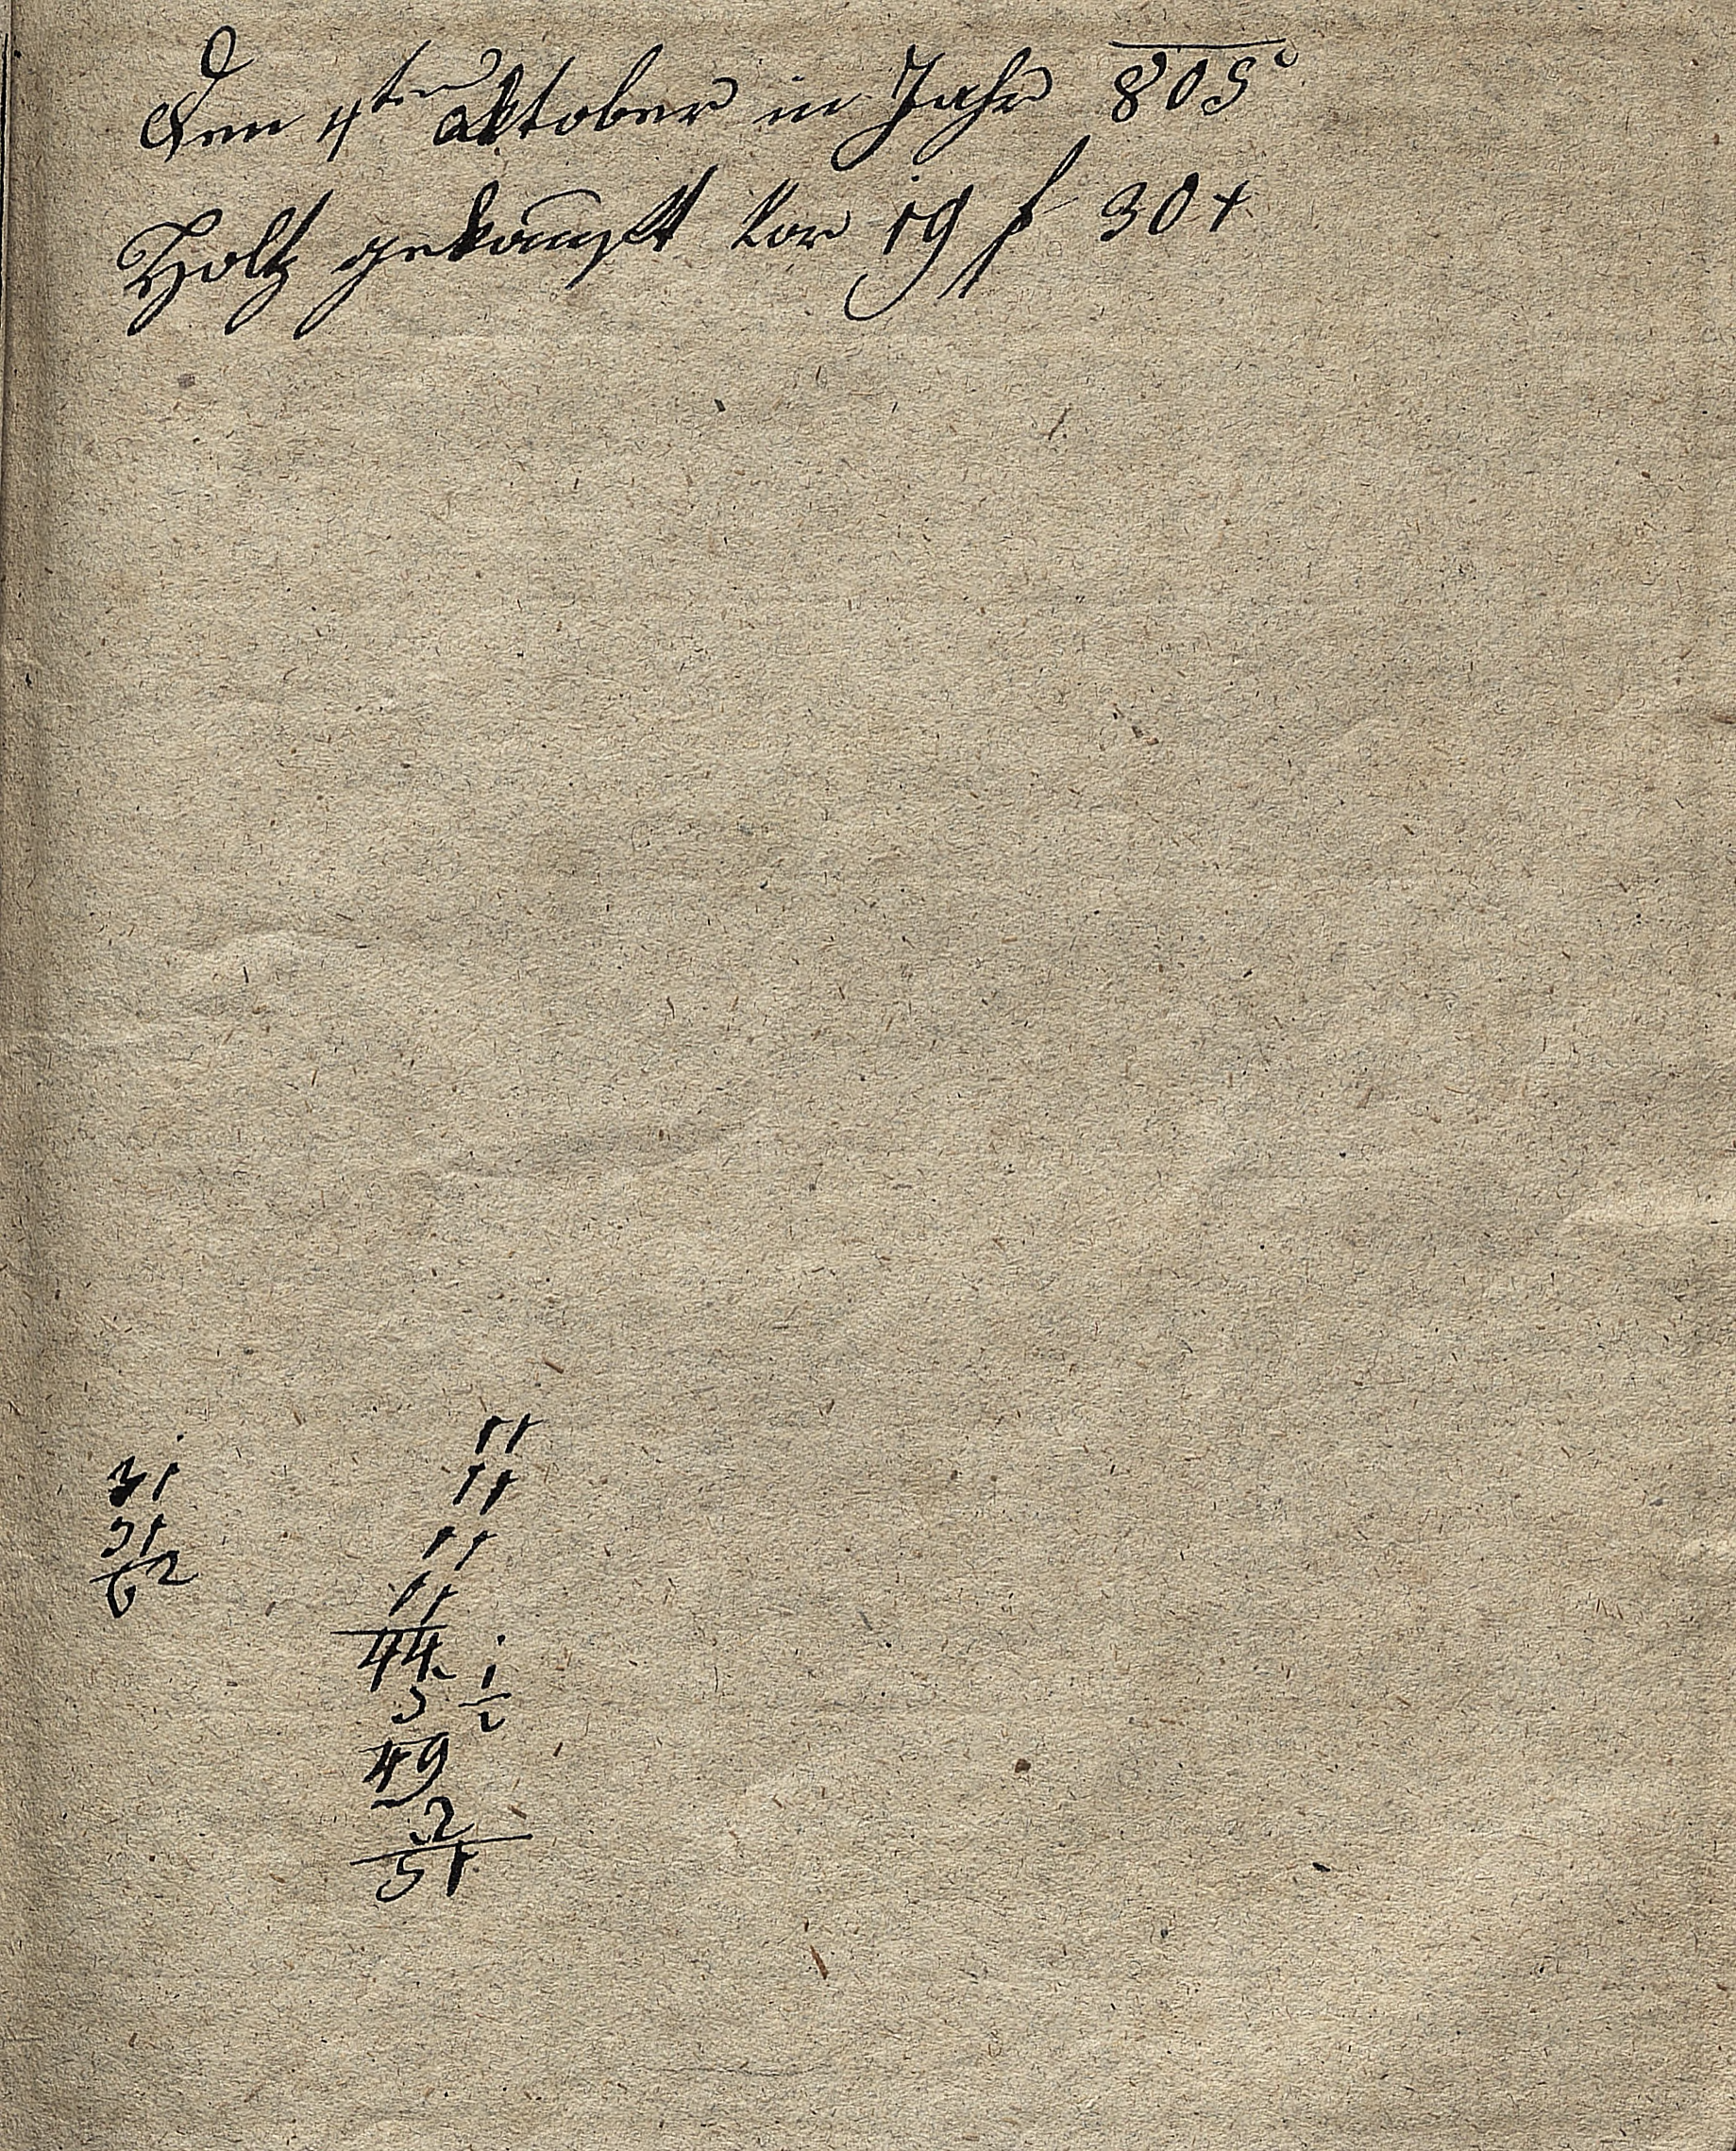 Den 4ten Oktober in Jahr 805
Holtz gekauft vor 19 f 30 x
31
31
62
11
11
11
11
44
5 1/2
49
2
51